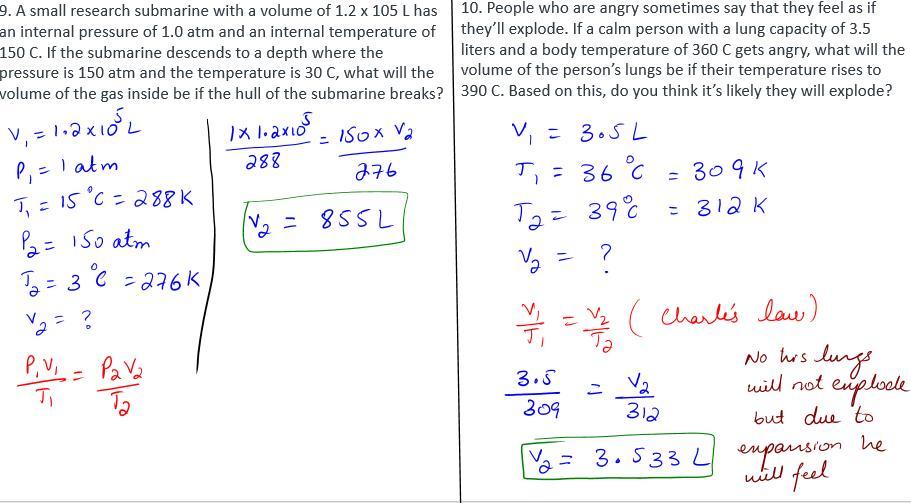 9. A small research submarine with a volume of 1.2 x 105 L has
an internal pressure of 1.0 atm and an internal temperature of
150 C. If the submarine descends to a depth where the
pressure is 150 atm and the temperature is 30 C, what will the
volume of the gas inside be if the hull of the submarine breaks?
V₁ = 1.2 x 10⁵ L
P₁ = 1 atm
T₁ = 15 °C = 288 K
P₂ = 150 atm
T₂ = 3 °C = 276 K
V₂ = ?
P₁V₁/T₁ = P₂V₂/T₂
1 x 1.2x10⁵/288 = 150 x V₂/276
V₂ = 855 L
10. People who are angry sometimes say that they feel as if
they'll explode. If a calm person with a lung capacity of 3.5
liters and a body temperature of 360 C gets angry, what will the
volume of the person's lungs be if their temperature rises to
390 C. Based on this, do you think it's likely they will explode?
V₁ = 3.5 L
T₁ = 36 °C = 309 K
T₂ = 39 °C = 312 K
V₂ = ?
V₁/T₁ = V₂/T₂ ( Charle's law)
3.5/309 = V₂/312
V₂ = 3.533 L
No his lungs
will not explode
but due to
expansion he
will feel